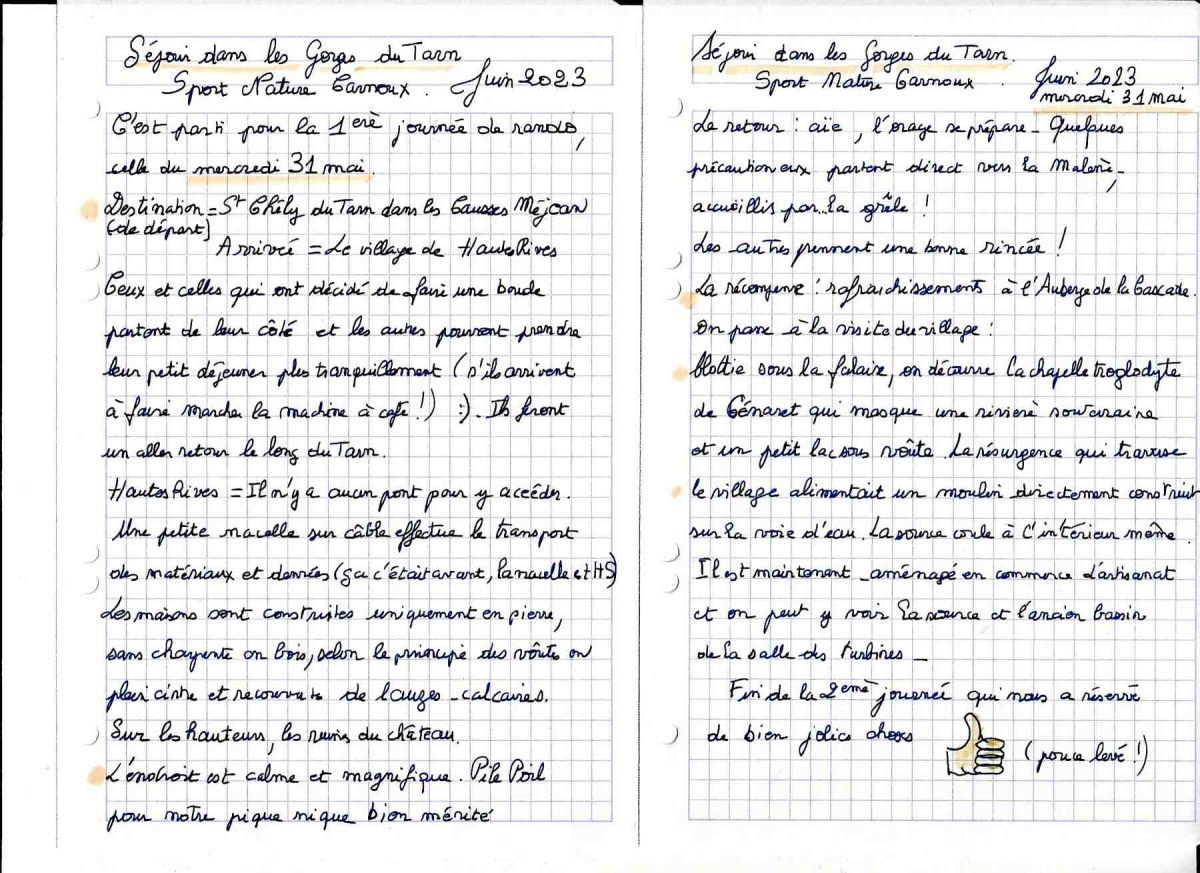 Séjour dans les Gorges du Tarn
Sport Nature Carnoux. Juin 2023
C'est parti pour la 1ère journée de rando,
celle du mercredi 31 mai.
Destination = St Chély du Tarn dans les Causses Méjean
(de départ)
Arrivée = Le village de Hautes Rives
Ceux et celles qui ont décidé de faire une boucle
partent de leur côté et les autres peuvent prendre
leur petit déjeuner plus tranquillement (s'ils arrivent
à faire marcher la machine à café !) :). Ils feront
un aller retour le long du Tarn.
Hautes Rives = Il n'y a aucun pont pour y accéder.
Une petite nacelle sur câble effectue le transport
des matériaux et denrées (ça c'était avant, la nacelle est HS)
Les maisons sont construites uniquement en pierre,
sans charpente en bois, selon le principe des voûtes en
plein cintre et recouvertes de lauzes calcaires.
Sur les hauteurs, les ruines du château.
L'endroit est calme et magnifique. Pile Poil
pour notre pique nique bien mérité
Séjour dans les Gorges du Tarn.
Sport Nature Carnoux. Juin 2023
mercredi 31 mai
Le retour : aïe, l'orage se prépare - Quelques
précautionneux partent direct vers la Malène,
accueillis par.. la grêle !
Les autres prennent une bonne rincée !
La récompense : rafraichissements à l'Auberge de la Cascade.
On passe à la visite du village :
blottie sous la falaise, on découvre la chapelle troglodyte
de Cénaret qui masque une rivière souterraine
et un petit lac sous voûte. La résurgence qui traverse
le village alimentait un moulin directement construit
sur la voie d'eau. La source coule à l'intérieur même.
Il est maintenant aménagé en commerce d'artisanat
et on peut y voir la source et l'ancien bassin
de la salle des turbines -
Fin de la 2ème journée qui nous a réservé
de bien jolies choses (pouce levé !)